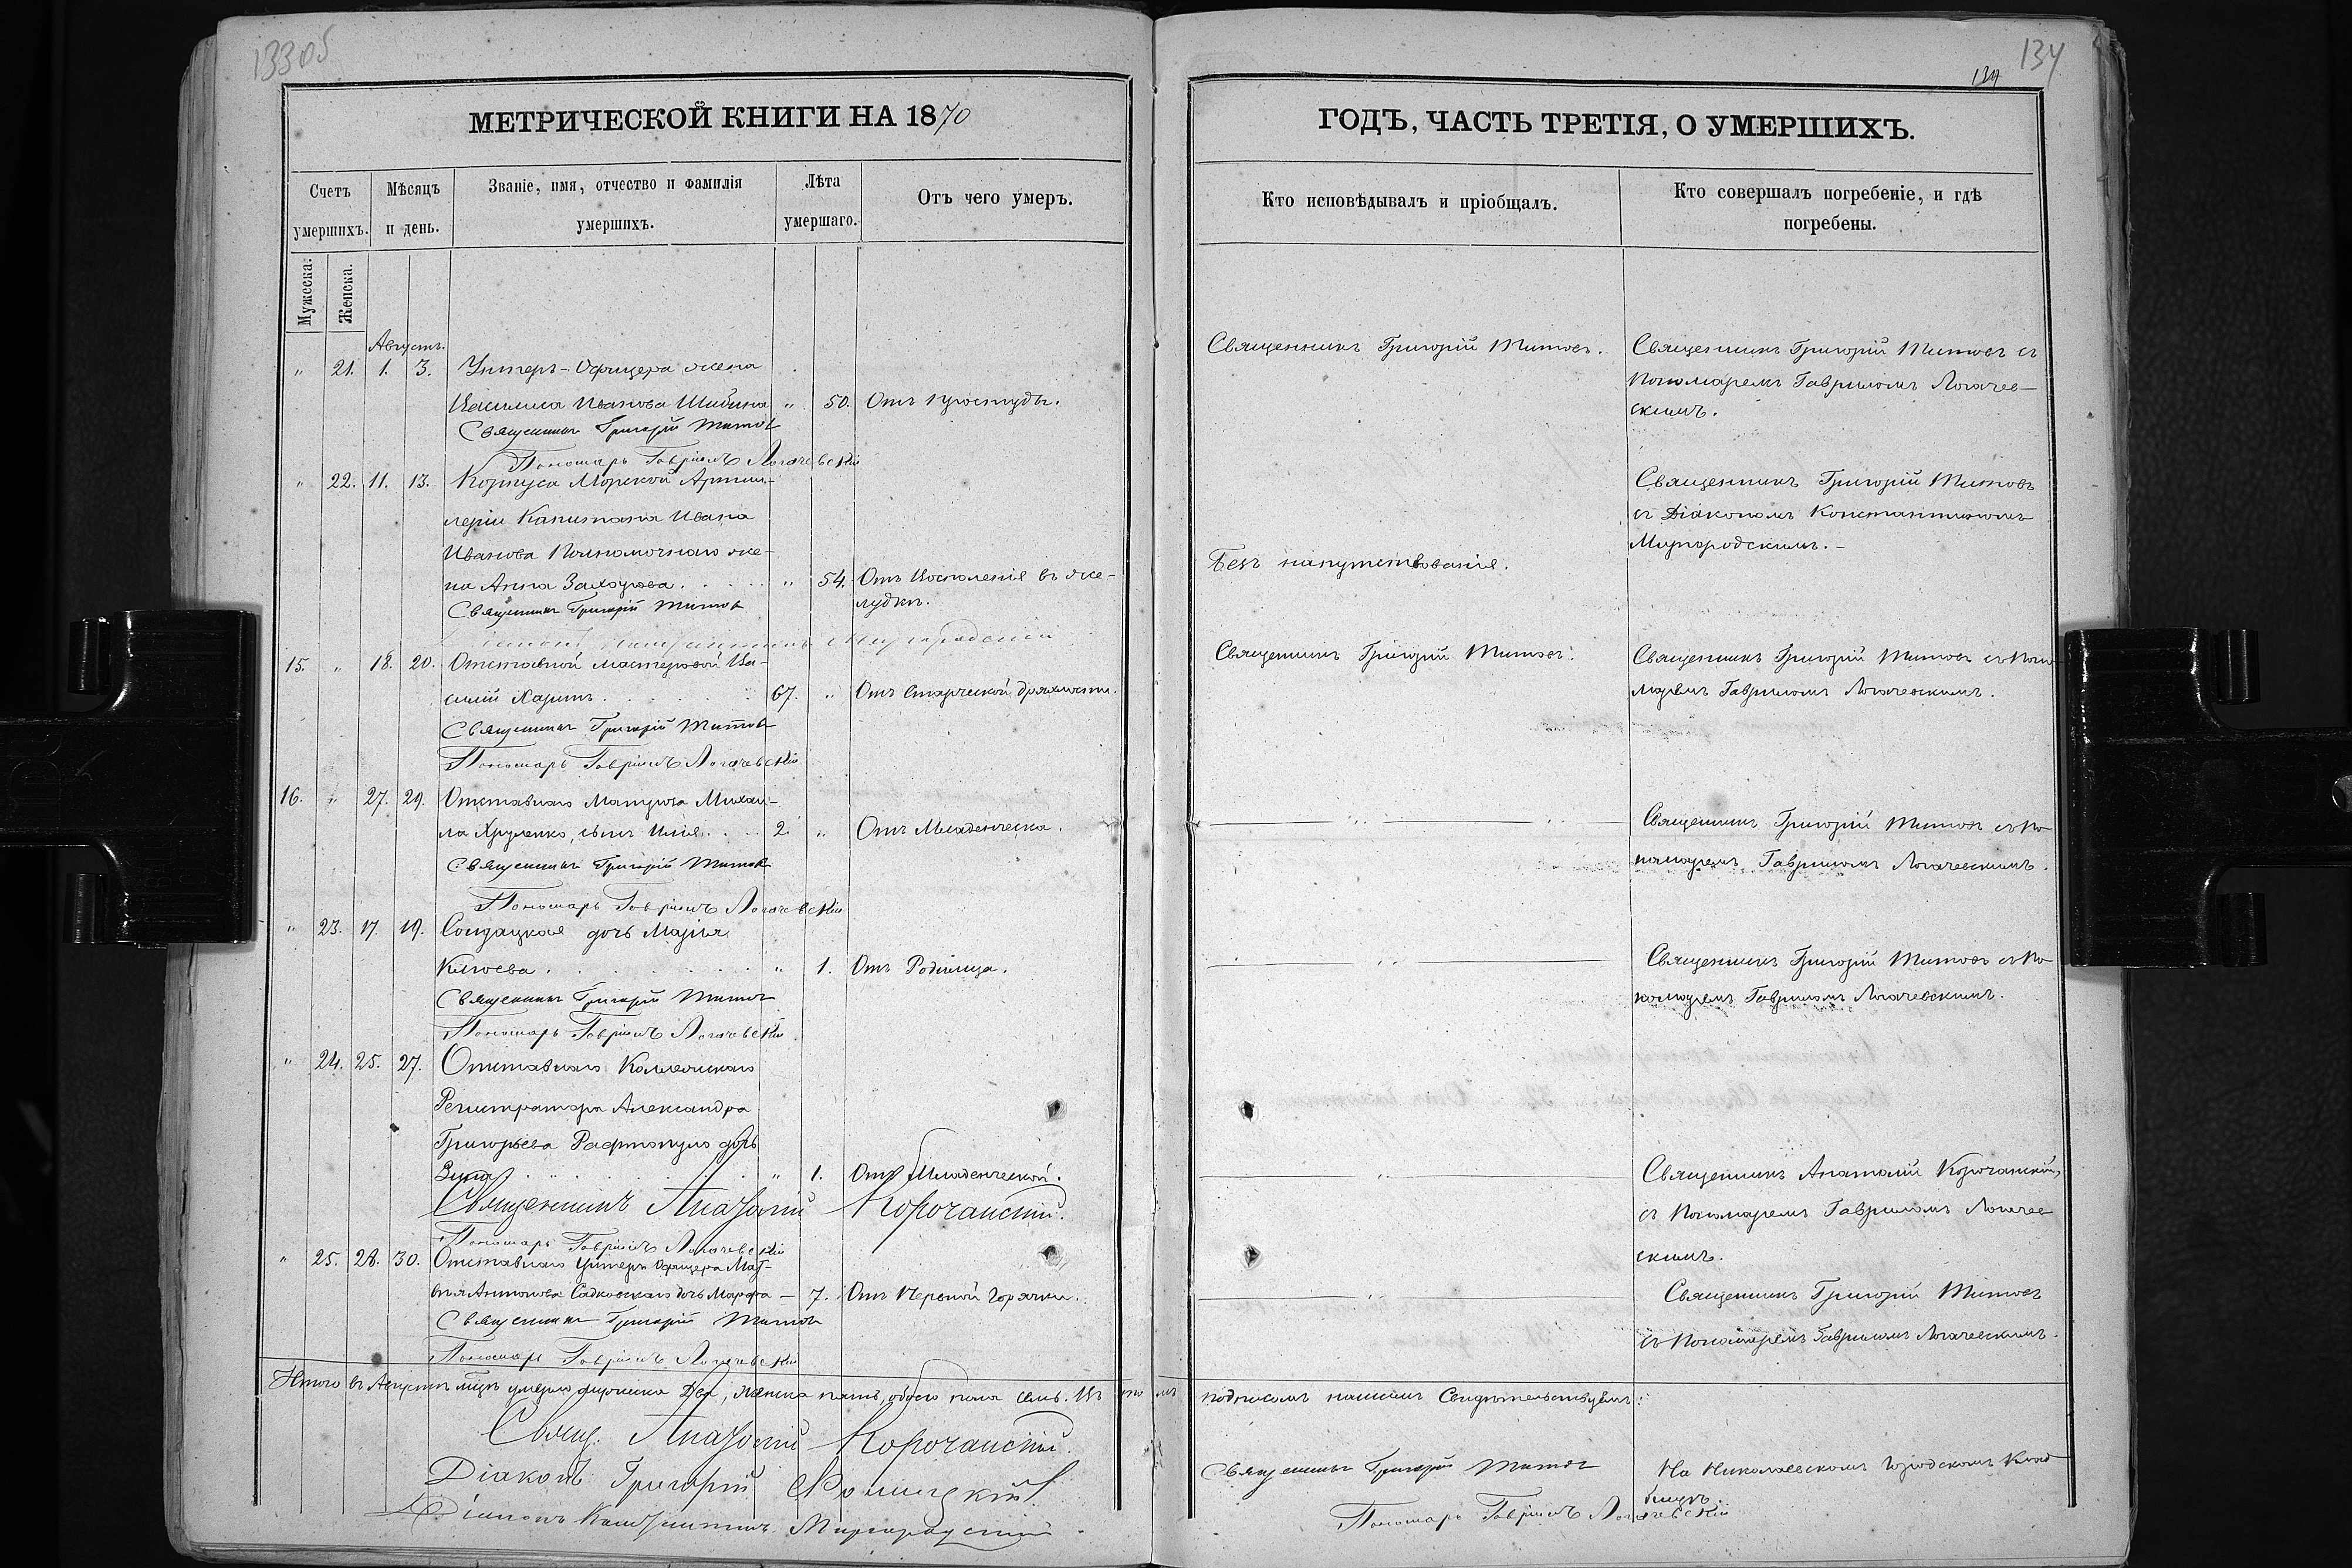 13305
МЕТРИЧЕСКОЙ КНИГИ НА 1870
Счетъ умершихъ.
Мѣсяцъ и день.
Званіе, имя, отчество и фамилія умершихъ.
Лѣта умершаго.
Отъ чего умеръ.
Мужеска.
Женска.
Августъ.
" 21. 1. 3. Унтеръ-Офицера жена
Василиса Иванова Шибина " 50. Отъ простуды.
Священникъ Григорій Титовъ
Пономарь Гавріилъ Логачевскій
" 22. 11. 13. Корпуса Морской Артил-
леріи Капитана Ивана
Иванова Полномочнаго же-
на Анна Захарова. " 54. Отъ Воспаленія въ же-
лудкѣ.
Священникъ Григорій Титовъ
Діаконъ Константинъ Миргородскій
15. " 18. 20. Отставной мастеровой Ва-
силій Харинъ. 67. " Отъ Старческой дряхлости.
Священникъ Григорій Титовъ
Пономарь Гавріилъ Логачевскій
16. " 27. 29. Отставнаго Матроза Михаи-
ла Хруленко, сынъ Илія. 2. " Отъ Младенческа.
Священникъ Григорій Титовъ
Пономарь Гавріилъ Логачевскій
" 23. 17. 19. Солдацкая дочь Марія
Килоева. " 1. Отъ Родимца.
Священникъ Григорій Титовъ
Пономарь Гавріилъ Логачевскій
" 24. 25. 27. Отставнаго Коллежскаго
Регистратора Александра
Григорьева Рафтопуло дочь
Зина " 1. Отъ Младенческой.
Священникъ Анатолій Корочанскій.
Пономарь Гавріилъ Логачевскій
" 25. 28. 30. Отставнаго Унтеръ Офицера Мат-
вѣя Антонова Садковскаго дочь Марфа — 7. Отъ Нервной Горячки.
Священникъ Григорій Титовъ
Пономарь Гавріилъ Логачевскій
Итого въ Августѣ мцѣ умерло мужеска Два, женска пять, обоего пола семь. Въ томъ
Свящ. Анатолій Корочанскій.
Діаконъ Григорій
Діаконъ Константинъ Миргородскій
134
134
ГОДЪ, ЧАСТЬ ТРЕТІЯ, О УМЕРШИХЪ.
Кто исповѣдывалъ и пріобщалъ.
Кто совершалъ погребеніе, и гдѣ погребены.
Священникъ Григорій Титовъ.
Священникъ Григорій Титовъ съ
Пономаремъ Гавріиломъ Логачев-
скимъ.
Безъ напутствованія.
Священникъ Григорій Титовъ
съ Діакономъ Константиномъ
Миргородскимъ.
Священникъ Григорій Титовъ.
Священникъ Григорій Титовъ съ Поно
маремъ Гавріиломъ Логачевскимъ.
Священникъ Григорій Титовъ съ По-
номаремъ Гавріиломъ Логачевскимъ.
Священникъ Григорій Титовъ съ По-
номаремъ Гавріиломъ Логачевскимъ.
Священникъ Анатолій Корочанскій,
съ Пономаремъ Гавріиломъ Логачев
скимъ.
Священникъ Григорій Титовъ
съ Пономаремъ Гавріиломъ Логачевскимъ.
подписомъ нашимъ Свидѣтельствуемъ:
Священникъ Григорій Титовъ
На Николаевскомъ Городскомъ Клад
бищѣ.
Пономарь Гавріилъ Логачевскій